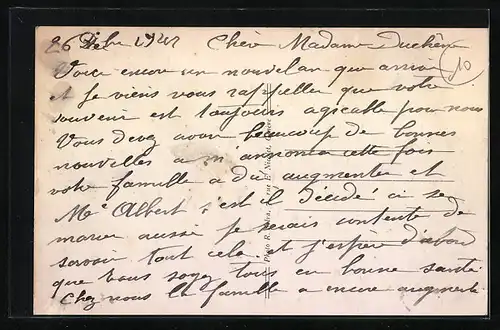 26 Xbre 1921 Chère Madame Duchêne
Voici encore un nouvel an qui arrive
et Je viens vous rappeller que votre
souvenir est toujours agréable pour nous
Vous devez avoir beaucoup de bonnes
nouvelles a m'annoncer cette fois
votre famille a du augmenter et
Mr Albert s'est il Décidé a se
marier aussi Je serais contente de
savoir tout cela et j'espère d'abord
que vous soyez tous en bonne santé
Chez nous la famille a encore augmenté
10
Photo R.